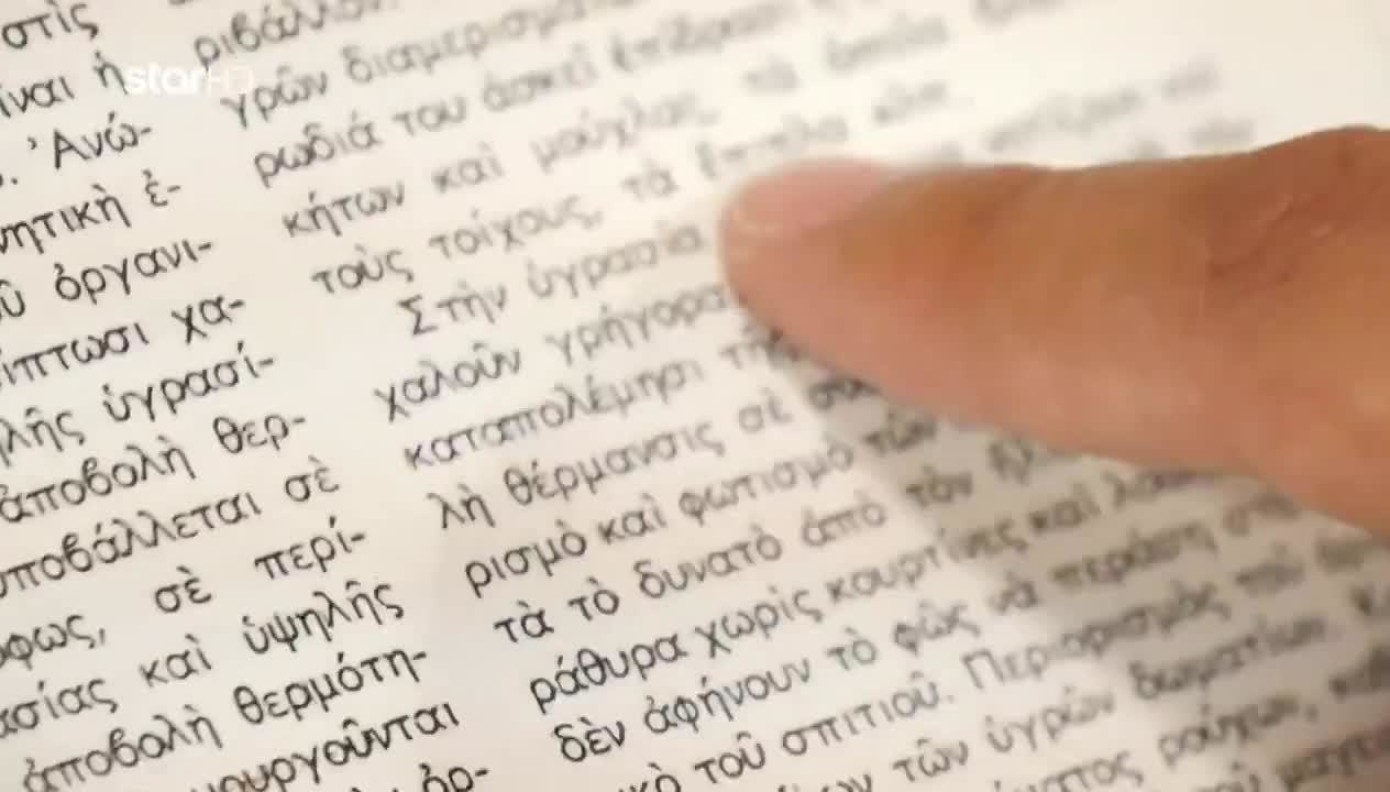 starHD
στὶς
ίναι ἡ
. Ἀνώ-
νητικὴ ἐ-
ῦ ὀργανι-
ίπτωσι χα-
λῆς ὑγρασί-
ἀποβολὴ θερ-
υποβάλλεται σὲ
φως, σὲ περί-
ασίας καὶ ὑψηλῆς
ἀποβολὴ θερμότη-
μιουργοῦνται
ὀρ-
γρῶν διαμερισμά
ρωδιά του ἀσκεῖ ἐπίδρασι
κήτων καὶ μούχλας, τὰ ὁποῖα
τοὺς τοίχους, τὰ ἔπιπλα κλπ.
Στὴν ὑγρασία
χαλοῦν γρήγορα
καταπολέμησι τῆς
λὴ θέρμανσις σὲ συ
ρισμὸ καὶ φωτισμὸ τῶν
τὰ τὸ δυνατὸ ἀπὸ τὸν ἥλ
ράθυρα χωρὶς κουρτίνες καὶ
δὲν ἀφήνουν τὸ φῶς νὰ περάση στὸ
κὸ τοῦ σπιτιοῦ. Περιορισμὸς τοῦ
τῶν ὑγρῶν δωματίων.
ματος ρούχων,